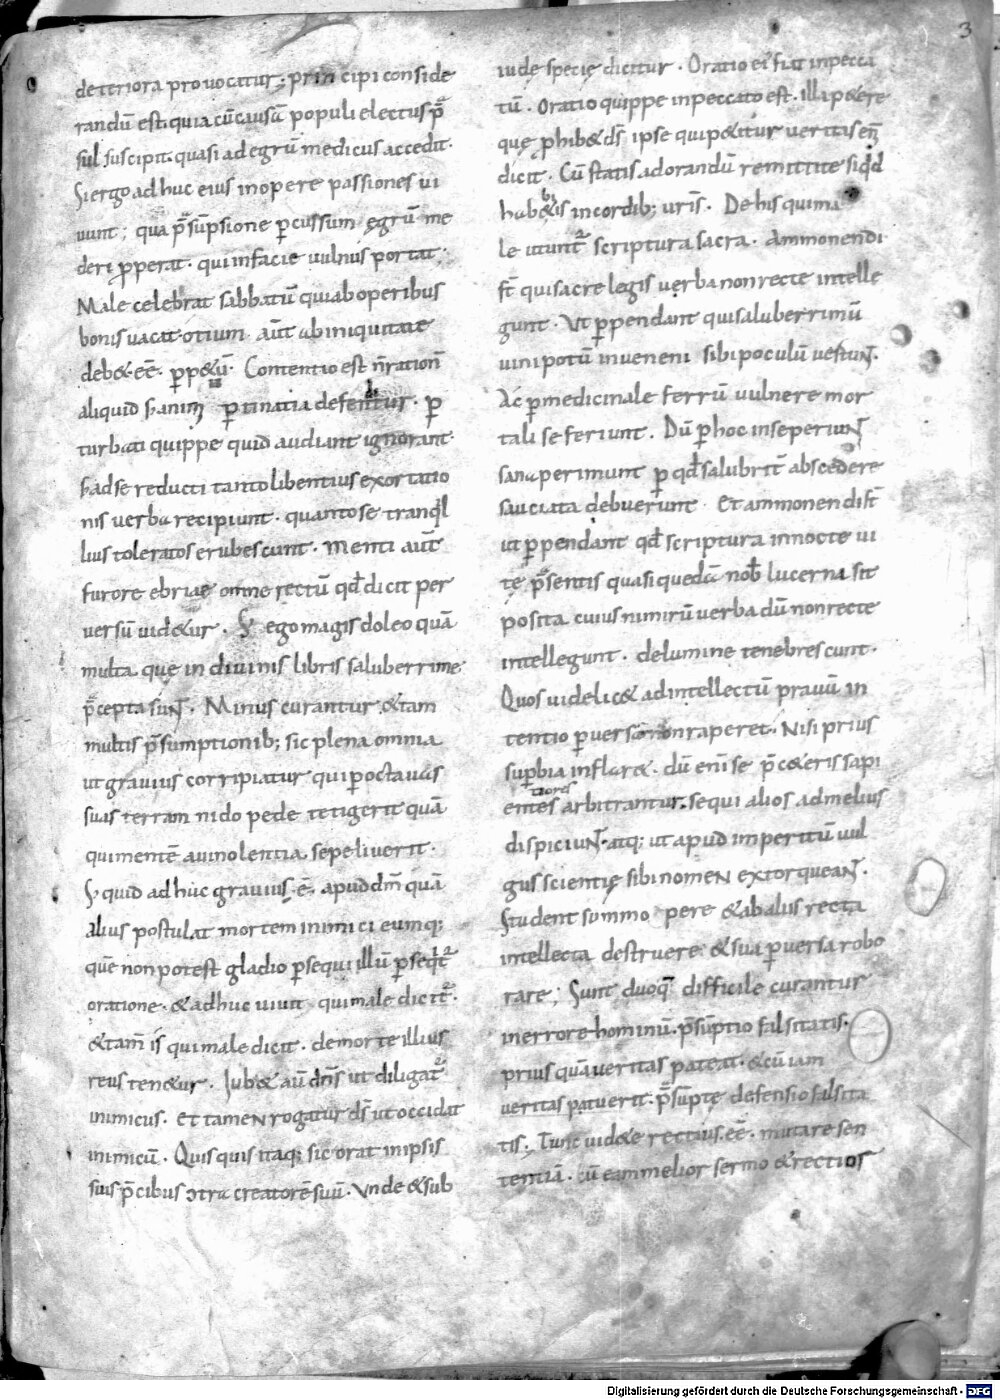 3
deteriora provocatur; principi conside
randū est. quia cū causā populi electus p̄
sul suscipit. quasi ad egrū medicus accedit.
Si ergo adhuc eius in opere passiones ui
uunt; qua p̄sūpsione ꝑcussum egrū me
deri ꝓperat. qui in facie uulnus portat;
Male celebrat sabbatū qui ab operibus
bonis uacat. otium aūt ab iniquitate
deb& ēē. ꝑp&uū. Contentio est n̄ rationē
aliquid ꝑtinatia defentur. ꝑ
turbati quippe quid audiant ignorant.
s; ad se reducti tanto libentius exortatio
nis uerba recipiunt. quanto se tranq̇l
lius toleratos erubescunt. Menti aūt
furore ebriae omne rectū qd̄ dicit per
uersū uid&ur. S; ego magis doleo quā
multa que in divinis libris saluberrime
p̄cepta sūN̄. Minus curantur &tam
multis p̄sumptionib; sic plena omnia
ut gravius corripiatur qui ꝑ octauas
suas terram nudo pede tetigerit quā
qui mentē auinolentia sepeliverit.
S; quid adhuc gravius ē. apud dm̄ quā
alius postulat mortem inimici eumq;
quē non potest gladio ꝑsequi illū ꝑseq̇tr̄
oratione. & adhuc uiuit qui male dicitr̄.
& tam̄ is qui male dicit. de morte illius
reus ten&ur. Iub& aū dn̄s ut diligatr̄
inimicus. et tamen rogatur ds̄ ut occidat
inimicū. Quisquis itaq; sic orat in ipsis
suis p̄cibus ↄtra creatorē suū. Vnde & sub
iudę specię dicitur. Oratio ei' fiat in pecca
tū. Oratio quippe in peccato est. illa p&ere
quę ꝓhib& ds̄ ipse qui p&itur ueritas eni
dicit. Cū statis ad orandū remittite siq̇d
hab&is in cordib; urīs. De his qui ma
le utuntr̄ scriptura sacra. Ammonendi
st̄ qui sacre legis uerba non recte intelle
gunt. Ut ꝑpendant qui saluberrimū
uini potū in ueneni sibi poculū uertuN̄.
Ac ꝑ medicinale ferrū uulnere mor
tali se feriunt. Dū ꝑ hoc in se periuN̄
sana perimunt ꝑ qd̄ salubrit̄ abscedere
sauciata debuerunt. Et ammonendi st̄
ut ꝑpendant qd̄ scriptura in nocte ui
te p̄sentis quasi quedā nob̄ lucerna sit
posita cuius nimirū uerba dū non recte
intellegunt. de lumine tenebrescunt.
Quos uidelic& ad intellectū prauū in
tentio ꝑuersa non raperet. Nisi prius
suꝑbia inflar&. dū eni se p̄ c&eris sapi
entiores arbitrantur. sequi alios ad melius
dispiciuN̄. atq; ut apud imperitū uul
gus scientię sibi nomen extorqueaN̄.
Student summo pere & ab aliis recta
intellecta destruere & sua ꝑuersa robo
rare; Sunt duo q̄ difficile curantur
in errore hominū. p̄sūptio falsitatis.
prius quā ueritas pateat. & cū iam
ueritas patuerit. p̄sūptę defensio falsita
tis; Tunc uid&e rectius ēē. mutare sen
tentiā. cū eam melior sermo & rectios
Digitalisierung gefördert durch die Deutsche Forschungsgemeinschaft - DFG